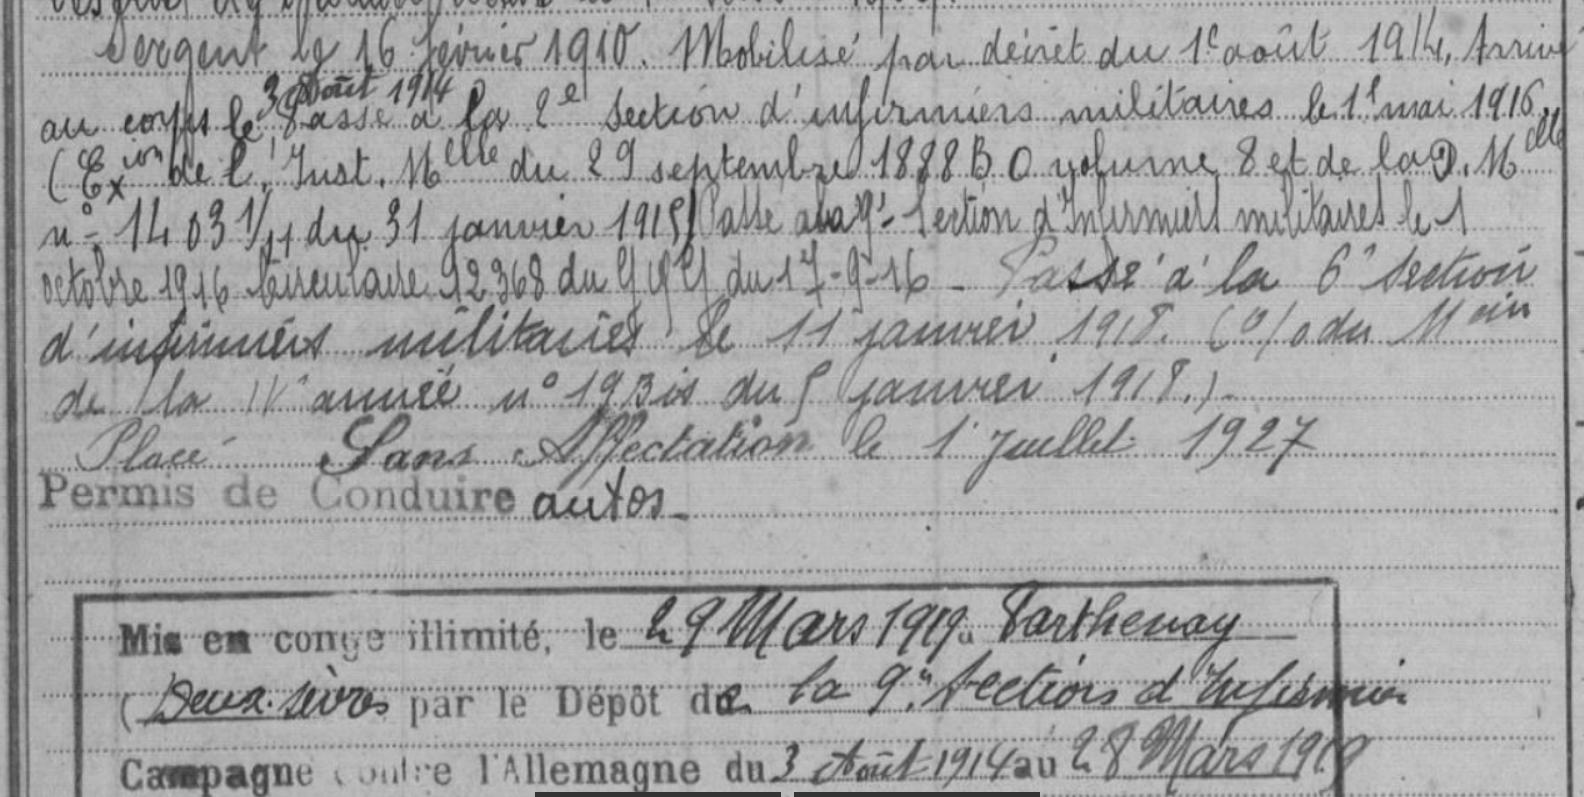 Sergent le 16 février 1910. Mobilisé par décret du 1er août 1914, Arrivé
au corps le 3 Août 1914 Passé à la 2e Section d'infirmiers militaires le 1er mai 1916
(Exion de l'Inst. Melle du 29 septembre 1888 B O volume 8 et de la D. Melle
n° 1403 1/11 du 31 janvier 1915) Passé à la 9e Section d'Infirmiers militaires le 1
octobre 1916 Circulaire 12368 du G Q G du 17-9-16 - Passé à la 6e Section
d'infirmiers militaires le 11 janvier 1918. (% du Moin
de la IVe année n° 193is du 5 janvier 1918.)
Placé Sans Affectation le 1er Juillet 1927
Permis de Conduire autos
Mis en congé illimité, le 29 Mars 1919 à Parthenay
(Deux-Sèvres par le Dépôt de la 9e Section d'Infirmier
Campagne contre l'Allemagne du 3 Août 1914 au 28 Mars 1919